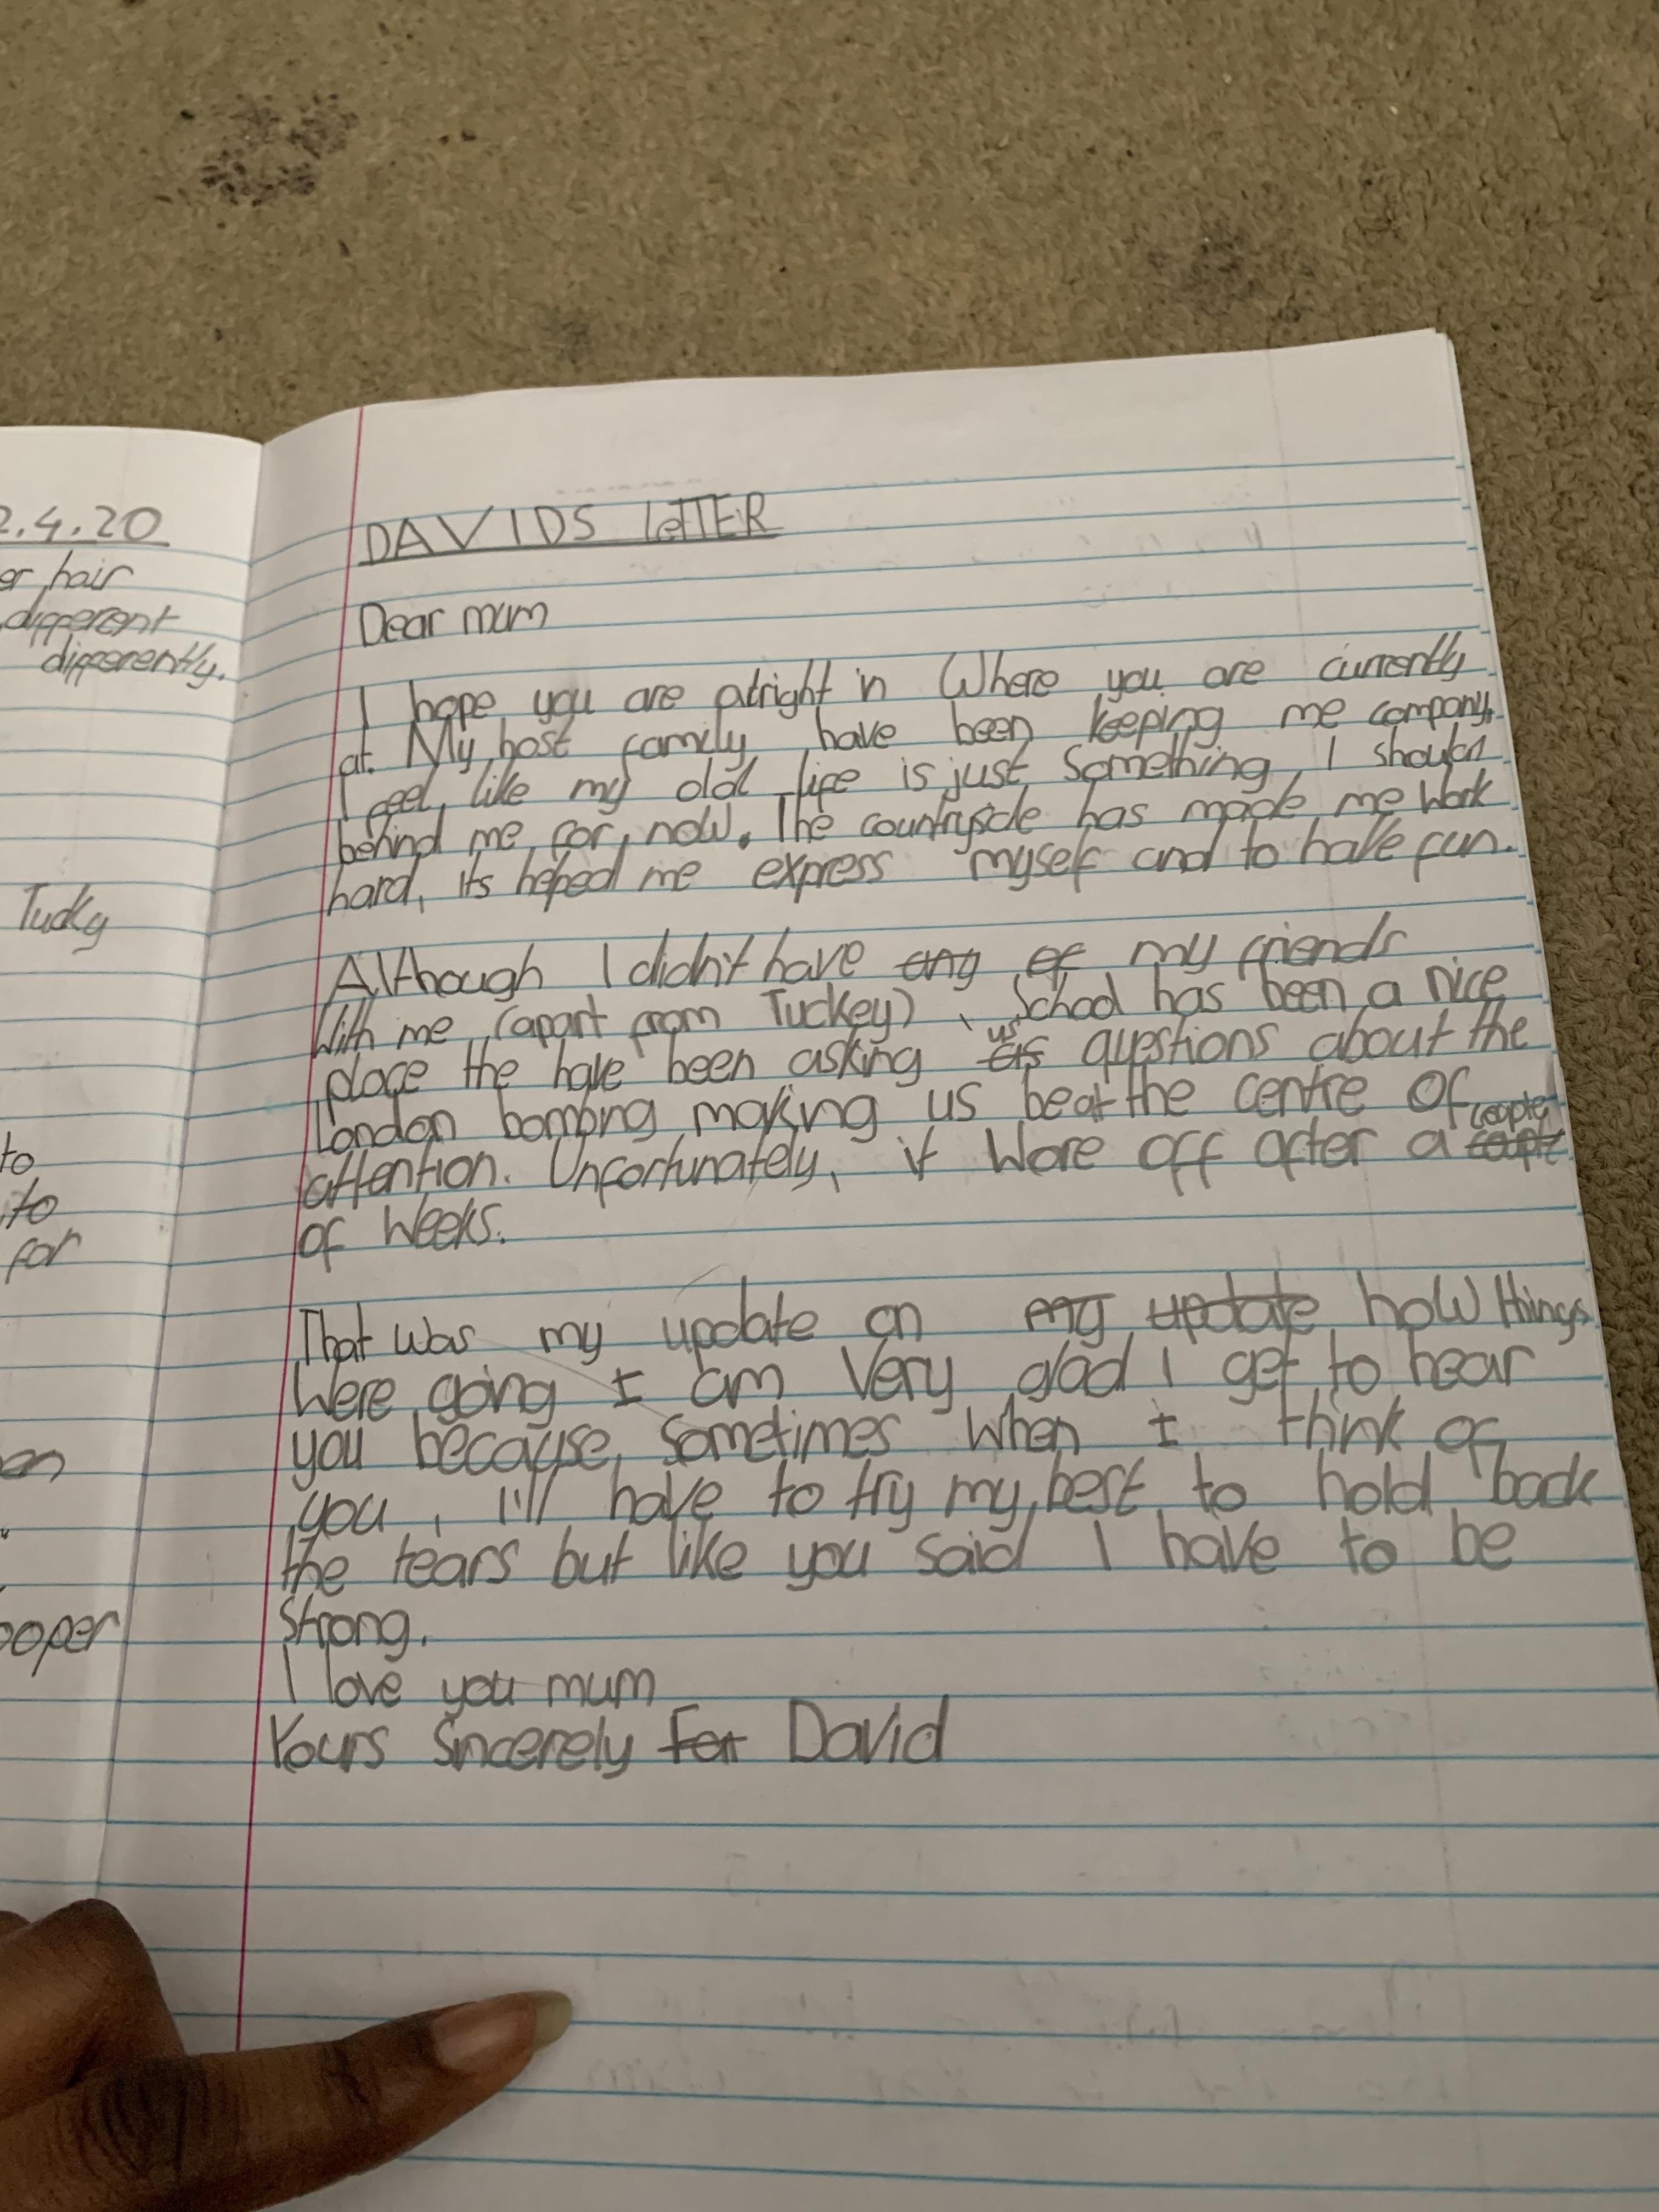 2.4.20
er hair
different
differently.
Tucky
to
to
for
en
ooper
DAVIDS LeTTER
Dear mum
I hope you are alright in Where you are currently
at. My host family have been keeping me company,
I feel like my old life is just something, I should
behind me for now. The countryside has made me work
hard, its heped me express myself and to have fun.
Although I didn't have any of my friends
With me (apart from Tuckey), School has been a nice
place the have been asking us questions about the
London bombing making us beat the centre of
attention. Unfortunately, it Wore off after a couple
of Weeks.
That was my update on my update how things
Were going I am Very glad I get to hear
you because, sometimes When I think of
you, I'll have to try my best to hold back
the tears but like you said I have to be
Strong.
I love you mum
Yours Sincerely For David